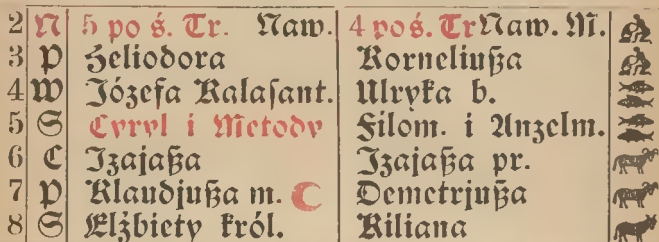 2 N 5 po ś. Tr. Naw. 4 poś. Tr Naw. M.
3 P Heliodora Korneliußa
4 W Józefa Kalasant. Ulryka b.
5 S Cyryl i Metody Filom. i Anzelm.
6 C Izajaßa Izajaßa pr.
7 P Klaudjußa m. Demetrjußa
8 S Elżbiety król. Kiliana